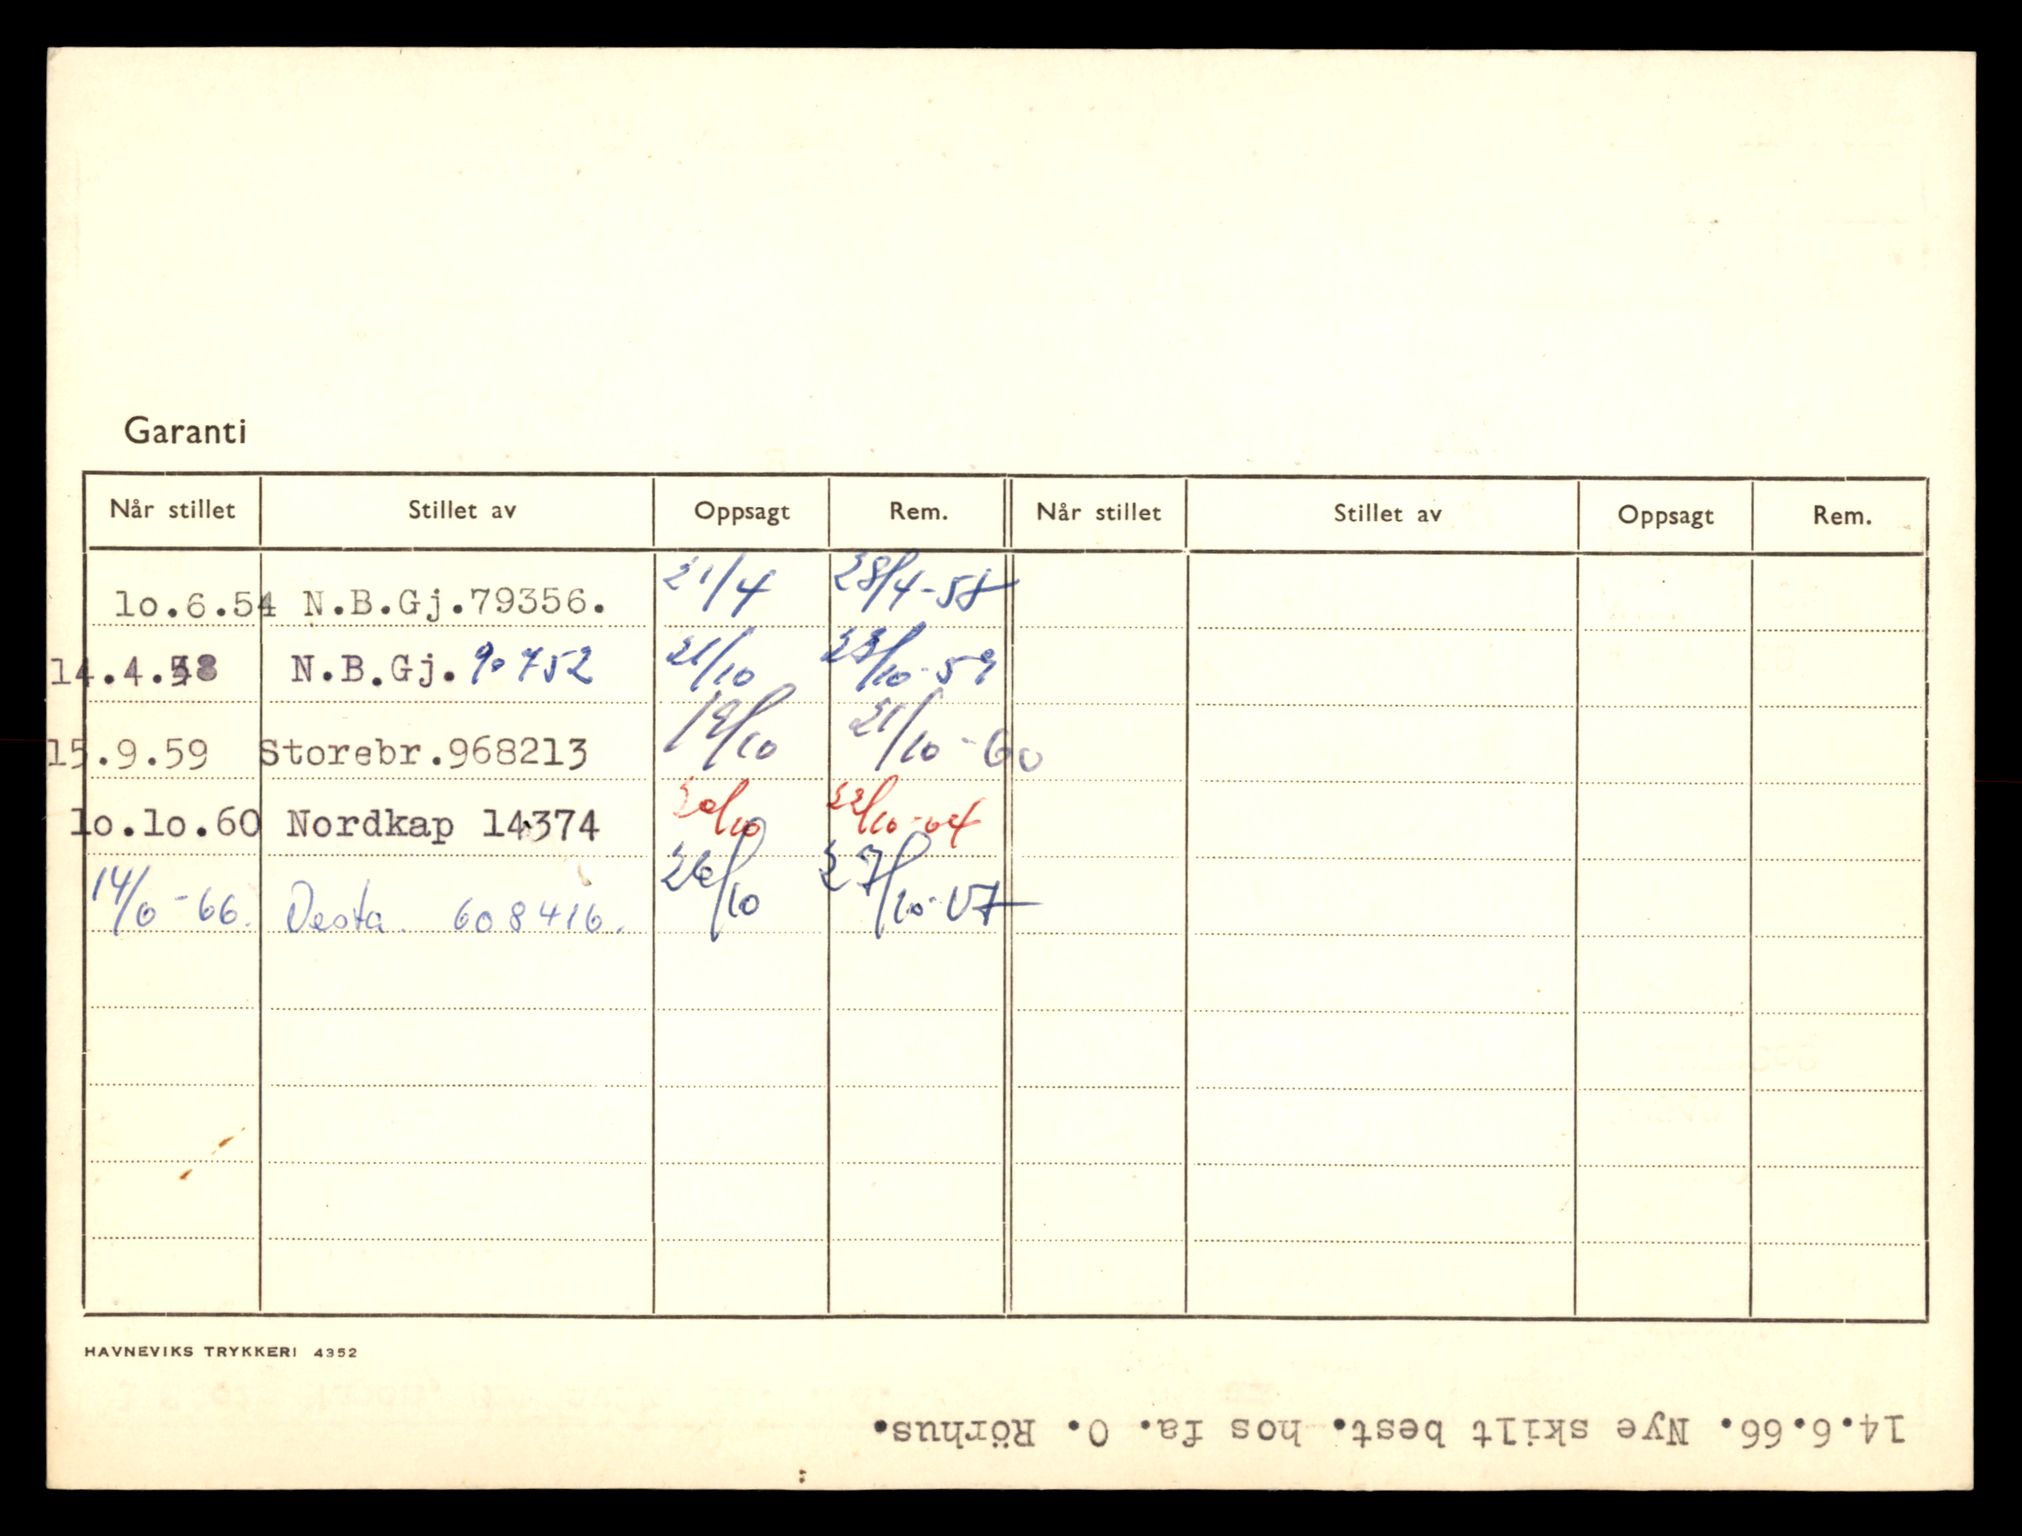 Garanti
Når stillet Stillet av Oppsagt Rem. Når stillet Stillet av Oppsagt Rem.
10.6.54 N.B.Gj.79356. 21/4 28/4-58
14.4.58 N.B.Gj.90752 21/10 23/10-59
15.9.59 Storebr.968213 19/10 21/10-60
10.10.60 Nordkap 14374 20/10 22/10-64
14/6-66. Vesta. 608416. 26/10 27/10-67
HAVNEVIKS TRYKKERI 4352
14.6.66. Nye skilt best. hos fa. O. Rörhus.